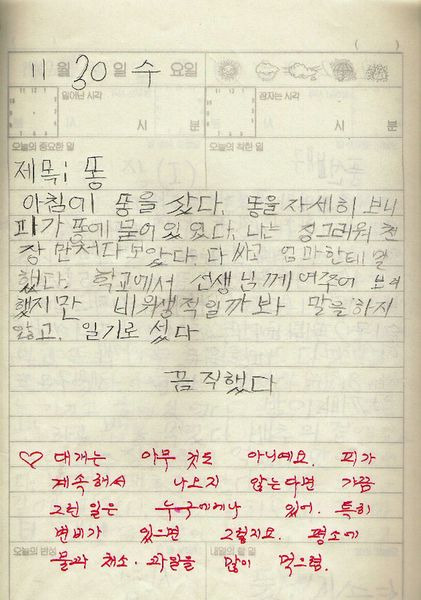 ( )
11월 30일 수 요일
일어난 시각 잠자는 시각
시 분 시 분
오늘의 중요한 일 오늘의 착한 일
제목: 똥
아침에 똥을 쌌다. 똥을 자세히 보니
피가 똥에 묻어 있었다. 나는 징그러워 천
장만 처다 보았다. 다 싸고 엄마한테 말
했다. 학교에서 선생님께 여주어 보려
했지만 비위생적일까봐 말을 하지
않고, 일기로 썼다
끔직했다
♡ 대개는 아무 것도 아니예요. 피가
계속해서 나오지 않는다면 가끔
그런 일은 누구에게나 있어. 특히
변비가 있으면 그렇지요. 평소에
오늘의 반성 내일의 할 일
물과 채소·과일을 많이 먹으렴.